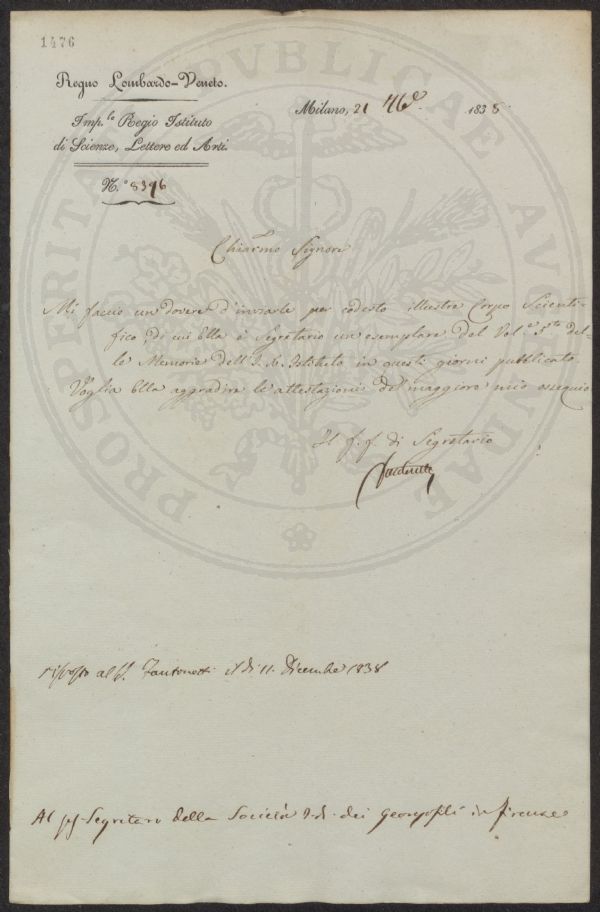 1476
PROSPERITATI PUBLICAE AUGENDAE
Regno Lombardo-Veneto.
Milano, 21 9bre. 1838
Imp.le Regio Istituto
di Scienze, Lettere ed Arti.
N.º 8396
Chiarmo Signore
Mi faccio un dovere d'inviarle per codesto illustre Corpo Scienti-
fico, di cui Ella è Segretario un esemplare del Vol.e 5.to del-
le Memorie dell'I. R. Istituto in questi giorni pubblicato.
Voglia Ella aggradire le attestazioni del maggiore mio ossequio
Il f. f. di Segretario
risposto al S. Fantonetti il dì 11. Dicembre 1838
Al Segretaro della Società dei Georgofili in Firenze